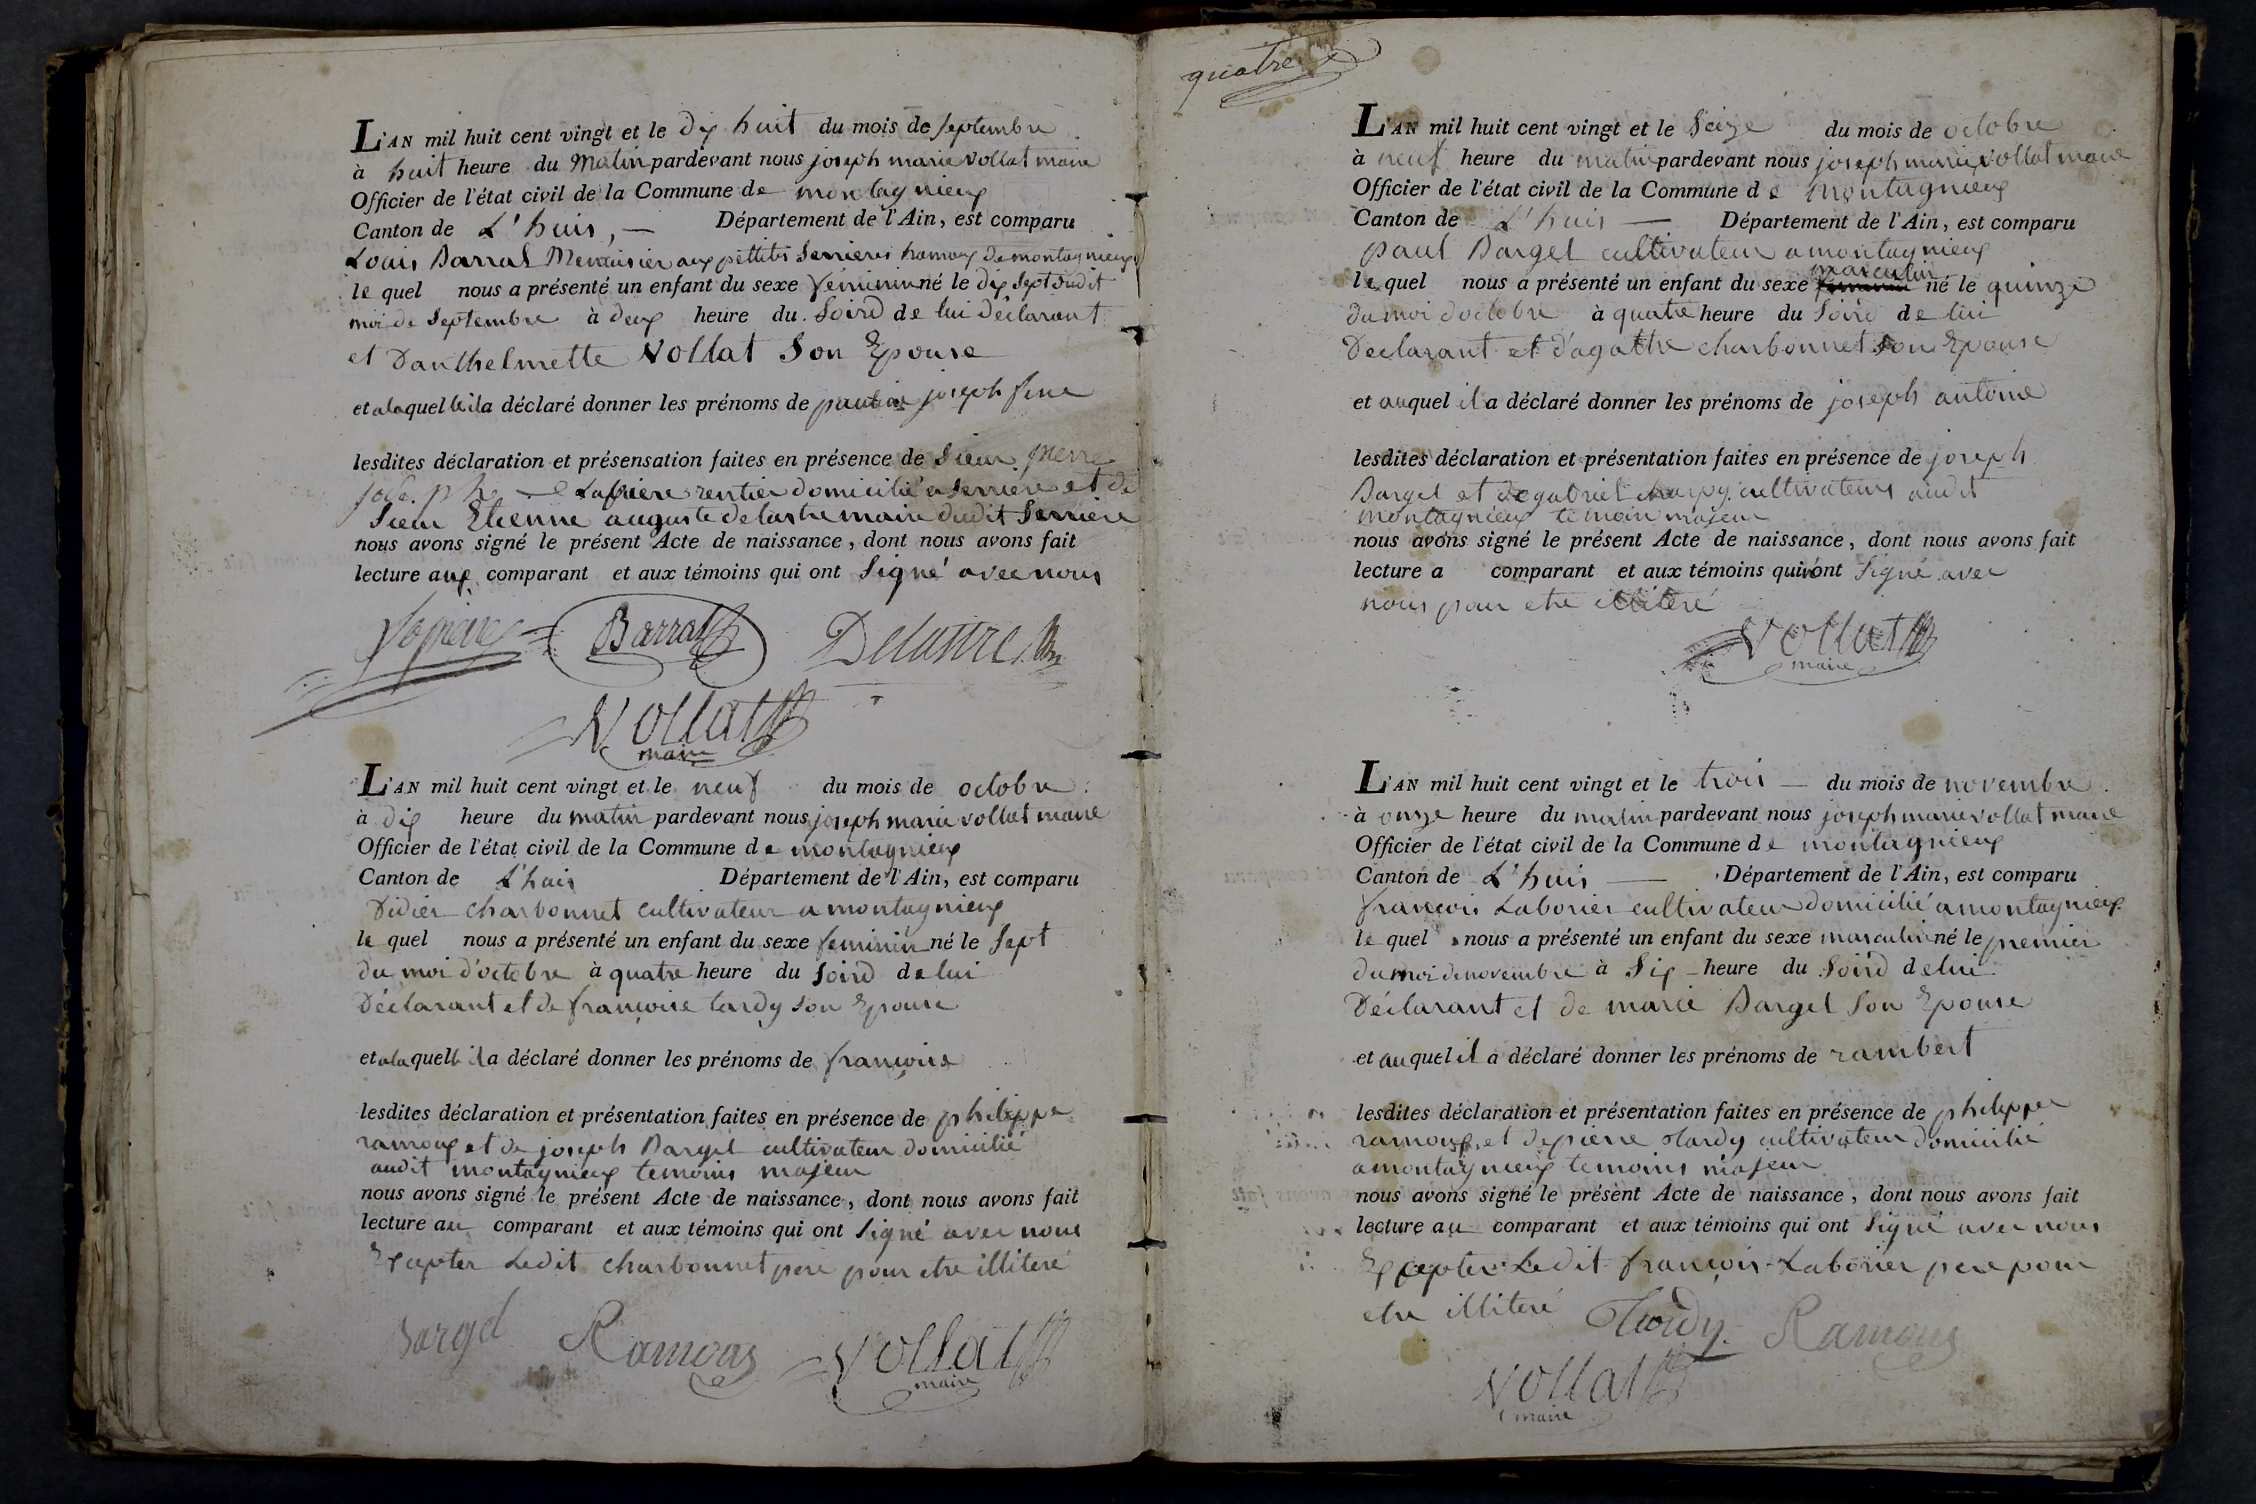 L'AN mil huit cent vingt et le dix huit du mois de septembre
à huit heure du Matin pardevant nous joseph marie vollat maire
Officier de l'état civil de la Commune de montagnieux
Canton de L'huis, — Département de l'Ain, est comparu
Louis Barral Menuisier aux pettites Serrieres hamaux de montagnieux
le quel nous a présenté un enfant du sexe féminin né le dix sept dudit
moi de Septembre à deux heure du Soird de lui déclarant
et Danthelmette Vollat Son Epouse
et a laquelle il a déclaré donner les prénoms de joseph fine
lesdites déclaration et présensation faites en présence de Sieur pierre
joseph rentier domicilié a Serriere et de
Sieur Etienne auguste delastre maire dudit Serriere
nous avons signé le présent Acte de naissance, dont nous avons fait
lecture aux comparant et aux témoins qui ont Signé avec nous
Barral Delastre
Vollat
maire
L'AN mil huit cent vingt et le neuf du mois de octobre
à dix heure du matin pardevant nous joseph marie vollat maire
Officier de l'état civil de la Commune de montagnieux
Canton de L'huis Département de l'Ain, est comparu
Didier charbonnet cultivateur a montagnieux
le quel nous a présenté un enfant du sexe feminin né le Sept
du moi d'octobre à quatre heure du Soird de lui
Déclarant et de françoise tardy Son Epouse
et a la quelle il a déclaré donner les prénoms de françoise
lesdites déclaration et présentation faites en présence de philippe
ramoux et de joseph Bargel cultivateur domicilié
audit montagnieux temoins majeur
nous avons signé le présent Acte de naissance, dont nous avons fait
lecture au comparant et aux témoins qui ont Signé avec nous
Excepter Ledit charbonnet pere pour etre illiteré
Bargel Ramoux Vollat
maire
quatre
L'AN mil huit cent vingt et le Seize du mois de octobre
à neuf heure du matin pardevant nous joseph marie vollat maire
Officier de l'état civil de la Commune de montagnieux
Canton de L'huis — Département de l'Ain, est comparu
paul Bargel cultivateur a montagnieux
masculin
le quel nous a présenté un enfant du sexe né le quinze
du moi doctobre à quatre heure du Soird de lui
Declarant et d'agathe charbonnet Son Epouse
et auquel il a déclaré donner les prénoms de joseph antoine
lesdites déclaration et présentation faites en présence de joseph
Bargel et de gabriel charpy cultivateurs audit
montagnieux temoin majeur
nous avons signé le présent Acte de naissance, dont nous avons fait
lecture a comparant et aux témoins qui n'ont Signé avec
nous pour etre illiteré
Vollat
maire
L'AN mil huit cent vingt et le trois — du mois de novembre
à onze heure du matin pardevant nous joseph marie vollat maire
Officier de l'état civil de la Commune de montagnieux
Canton de L'huis — Département de l'Ain, est comparu
françois Laborier cultivateur domicilié a montagnieux
le quel nous a présenté un enfant du sexe masculin né le premier
du moi de novembre à Six heure du Soird de lui
Déclarant et de marie Bargel Son Epouse
et auquel il a déclaré donner les prénoms de rambert
lesdites déclaration et présentation faites en présence de philippe
ramoux et de pierre Tardy cultivateur domicilié
a montagnieux temoins majeur
nous avons signé le présent Acte de naissance, dont nous avons fait
lecture au comparant et aux témoins qui ont Signé avec nous
Excepter Ledit françois Laborier pere pour
etre illiteré Tardy Ramoux
Vollat
maire